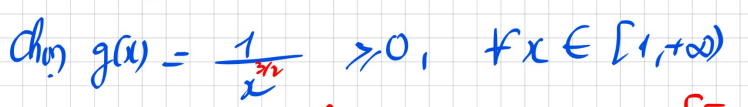 Chọn g(x) = 1/x^{3/2} ⩾ 0, ∀x ∈ [1,+∞)